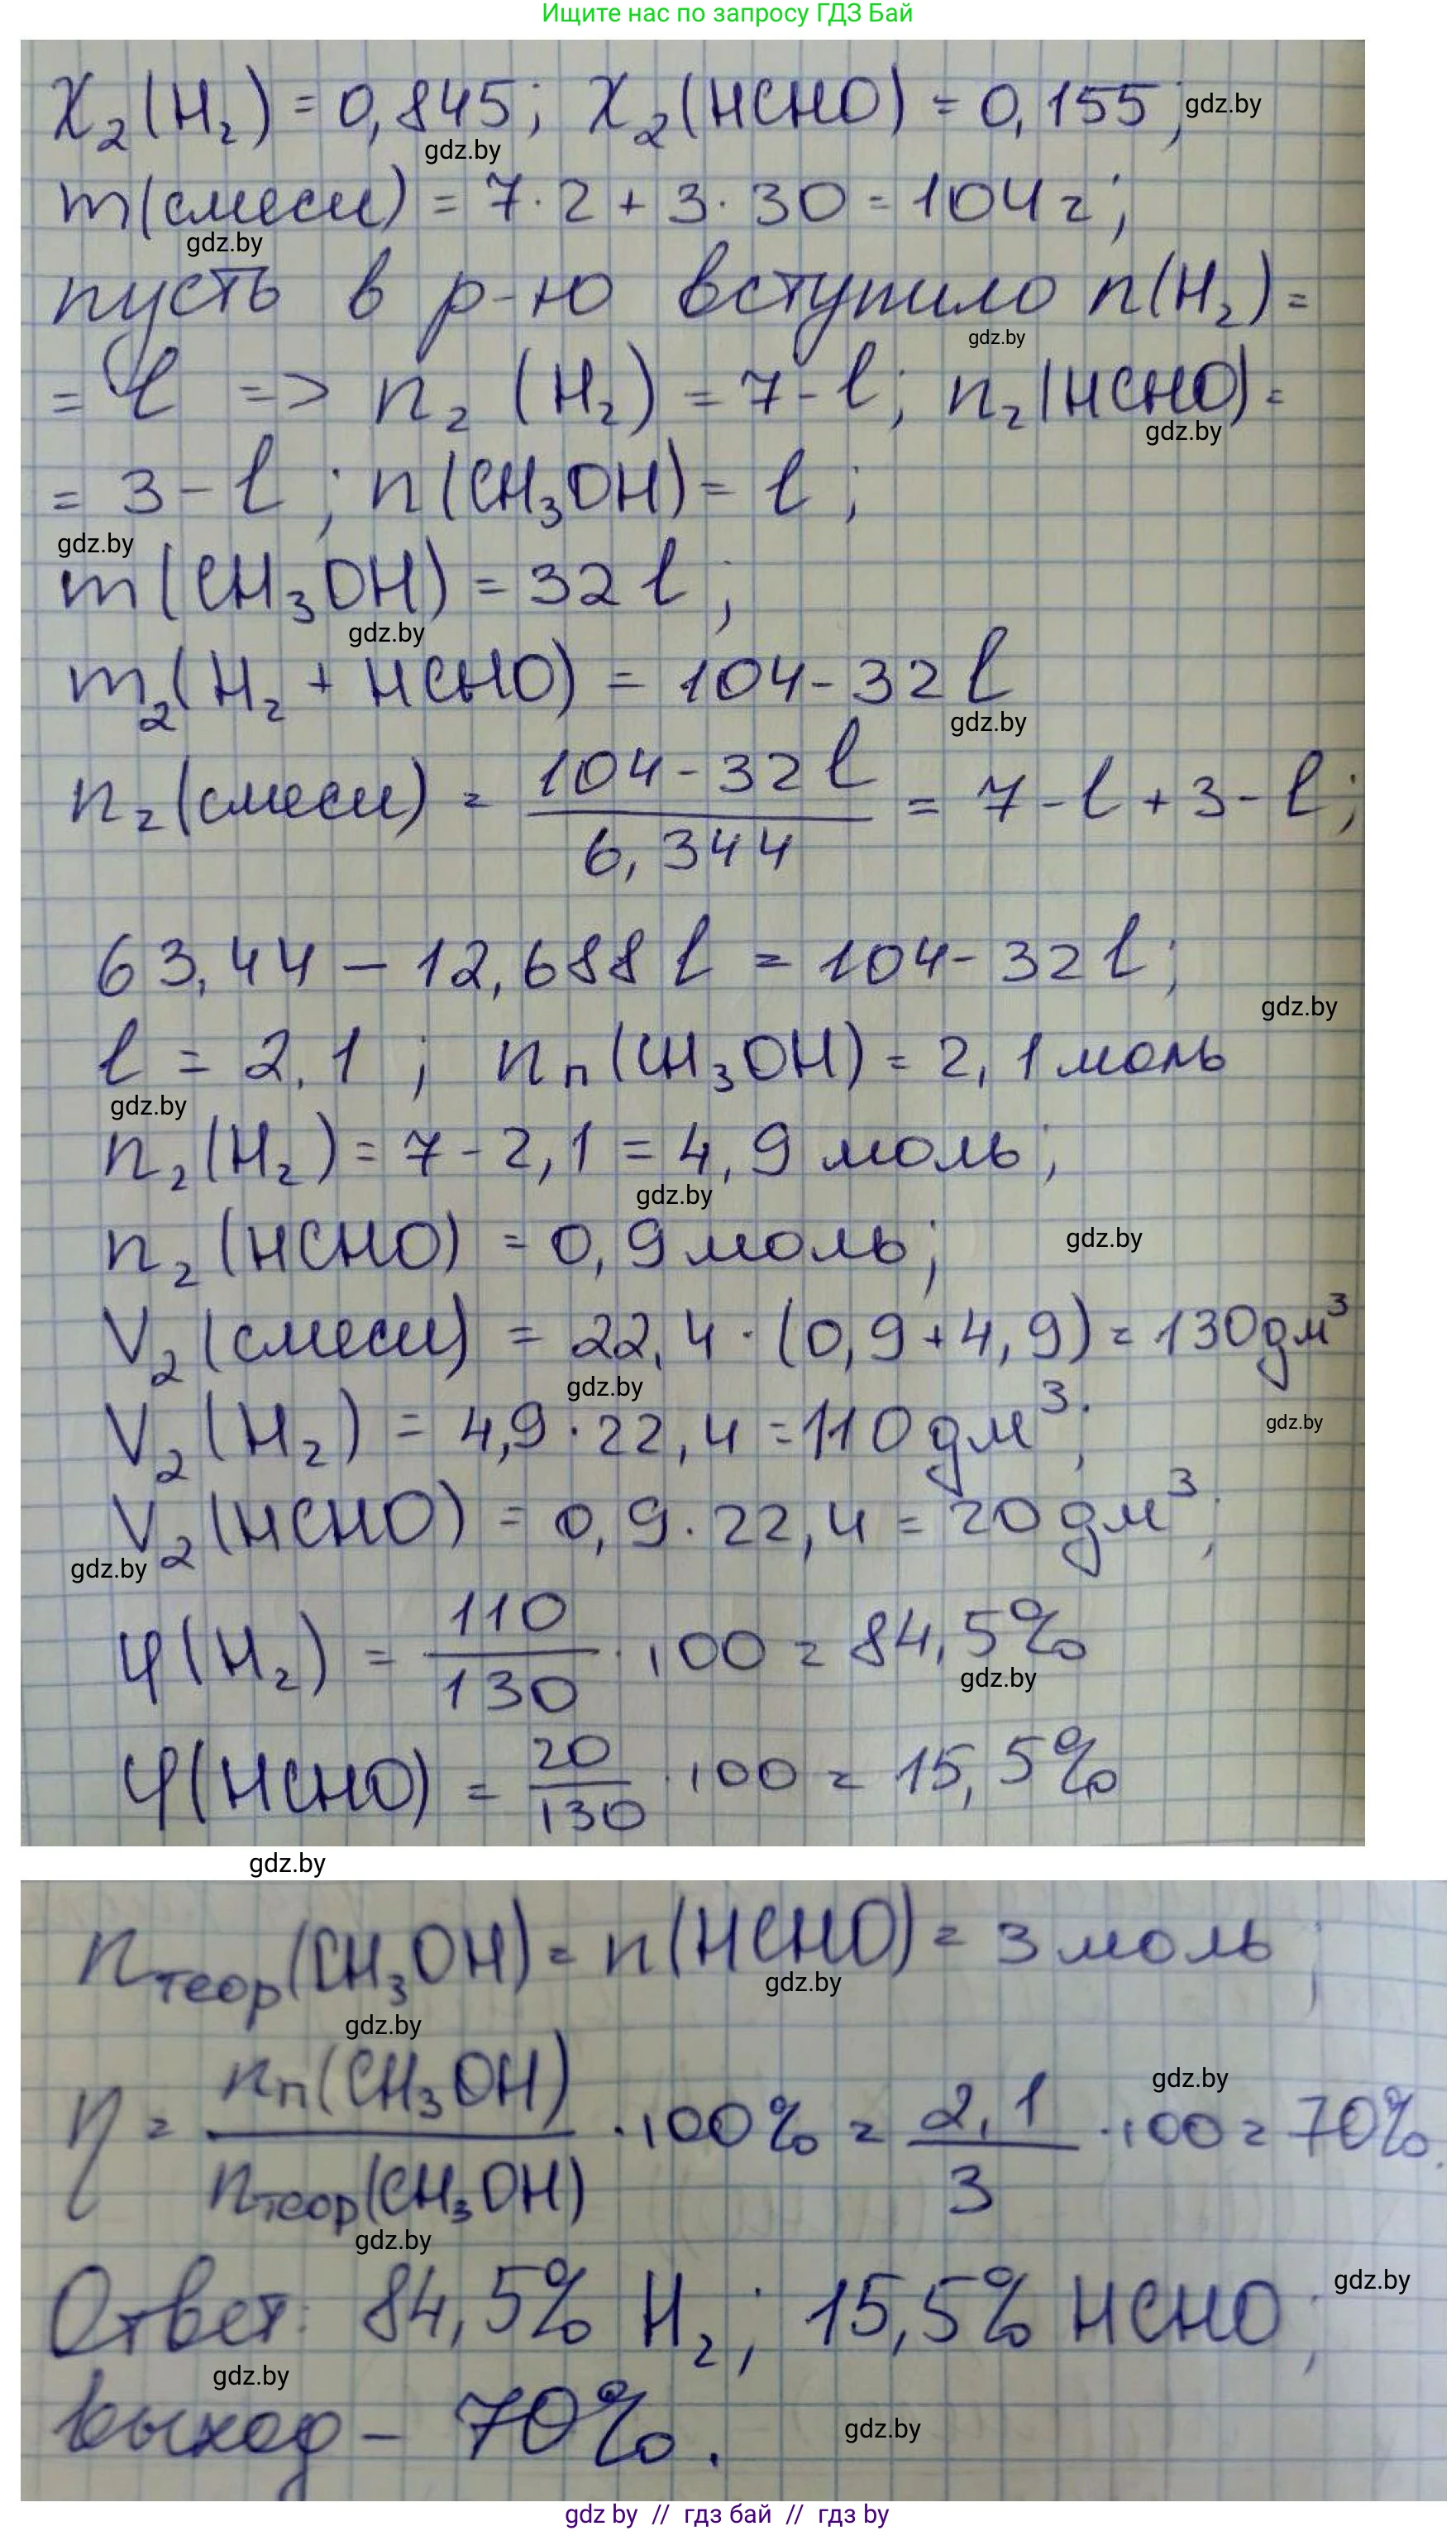 Ищите нас по запросу ГДЗ Бай
X₂(H₂) = 0,845; X₂(HCHO) = 0,155; gdz.by
gdz.by
m(смеси) = 7·2 + 3·30 = 104 г;
gdz.by
пусть в р-ю вступило n(H₂) =
gdz.by
= l => n₂ (H₂) = 7-l; n₂(HCHO) =
gdz.by
= 3-l; n(CH₃OH) = l;
gdz.by
m(CH₃OH) = 32 l;
gdz.by
m₂(H₂ + HCHO) = 104-32 l
gdz.by
n₂(смеси) = (104-32 l)/6,344 = 7-l+3-l;
63,44 - 12,688 l = 104-32 l;
gdz.by
l = 2,1; nп(CH₃OH) = 2,1 моль
gdz.by
n₂(H₂) = 7-2,1 = 4,9 моль;
gdz.by
n₂(HCHO) = 0,9 моль; gdz.by
V₂(смеси) = 22,4·(0,9+4,9) = 130 дм³
gdz.by
V₂(H₂) = 4,9·22,4 = 110 дм³; gdz.by
V₂(HCHO) = 0,9·22,4 = 20 дм³;
gdz.by
φ(H₂) = 110/130 · 100 = 84,5%
gdz.by
φ(HCHO) = 20/130 · 100 = 15,5%
gdz.by
nтеор(CH₃OH) = n(HCHO) = 3 моль;
gdz.by
gdz.by
η = nп(CH₃OH)/nтеор(CH₃OH) · 100% = 2,1/3 · 100 = 70%.
gdz.by
gdz.by
Ответ: 84,5% H₂; 15,5% HCHO; gdz.by
gdz.by
выход - 70%. gdz.by
gdz by // гдз бай // гдз by